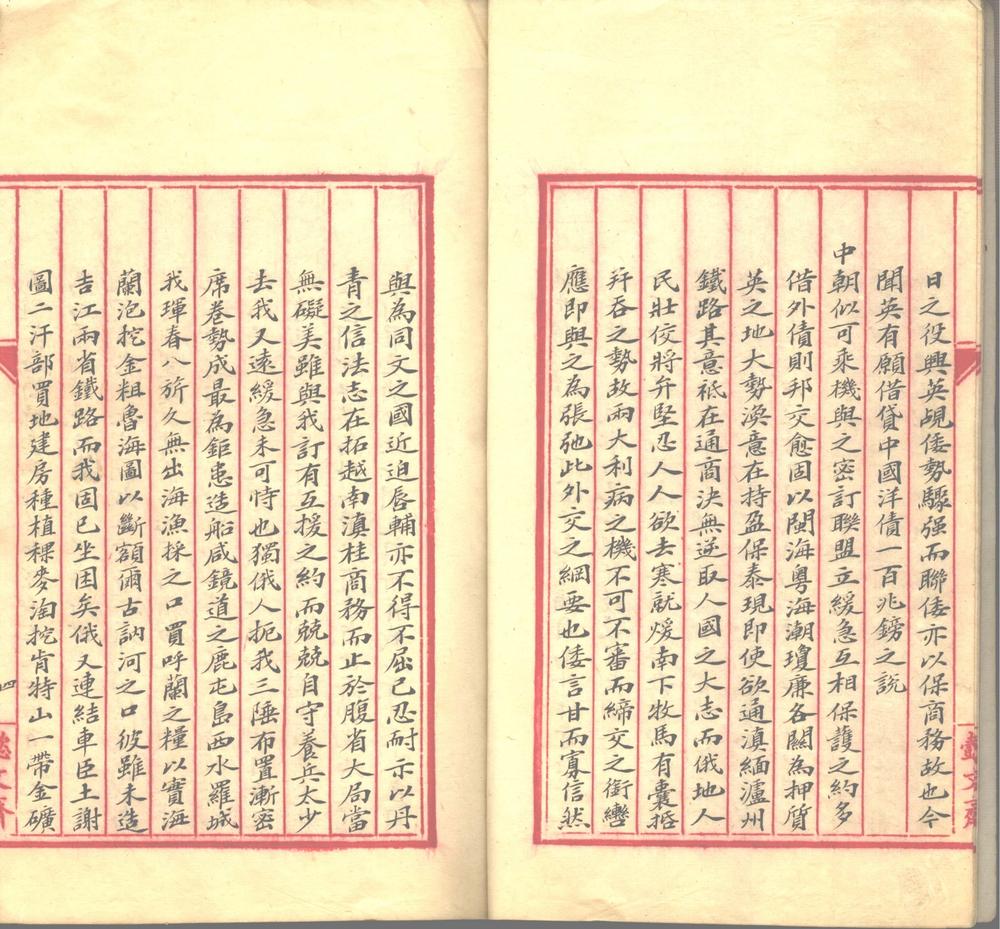 日之役興英覘倭勢驟强而聯倭亦以保商務故也今
聞英有願借貸中國洋債一百兆鎊之說
中朝似可乘機與之密訂聯盟立緩急互相保護之約多
借外債則邦交愈固以閩海粵海潮瓊廉各關為押質
英之地大勢渙意在持盈保泰現即使欲通滇緬瀘州
鐵路其意祗在通商決無逆取人國之大志而俄地人
民壯佼將弁堅忍人人欲去寒就煖南下牧馬有囊括
幷吞之勢故兩大利病之機不可不審而締交之銜轡
應即與之為張弛此外交之綱要也倭言甘而寡信然
與為同文之國近迫唇輔亦不得不屈己忍耐示以丹
青之信法志在拓越南滇桂商務而止於腹省大局當
無礙美雖與我訂有互援之約而兢兢自守養兵太少
去我又遠緩急未可恃也獨俄人扼我三陲布置漸密
席卷勢成最為鉅患造船咸鏡道之鹿屯島西水羅城
我琿春八旂久無出海漁採之口買呼蘭之糧以實海
蘭泡挖金粗魯海圖以斷額爾古訥河之口彼雖未造
吉江兩省鐵路而我固已坐困矣俄又連結車臣土謝
圖二汗部買地建房種植稞麥淘挖肯特山一帶金礦
四
懿文齋